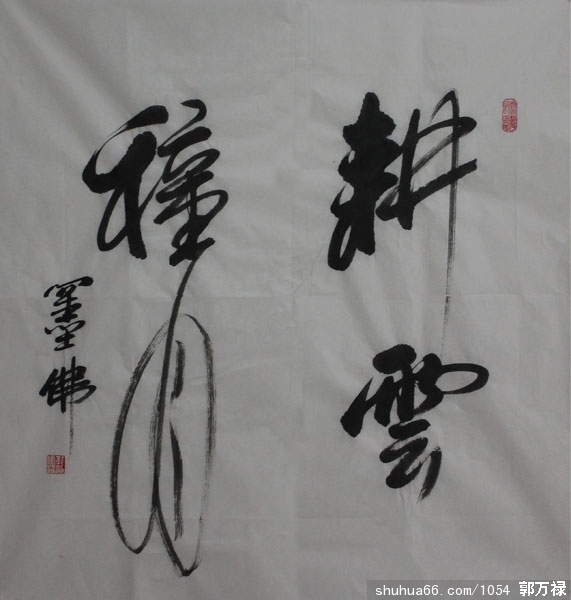 耕雲
種月
墨佛
shuhua66.com/1054 郭万禄